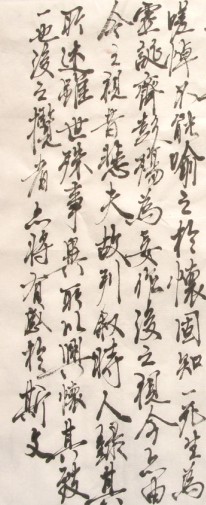 嗟悼不能喻之於懷固知一死生為
虛誕齊彭殤為妄作後之視今亦由
今之視昔悲夫故列敘時人錄其
所述雖世殊事異所以興懷其致
一也後之攬者亦將有感於斯文